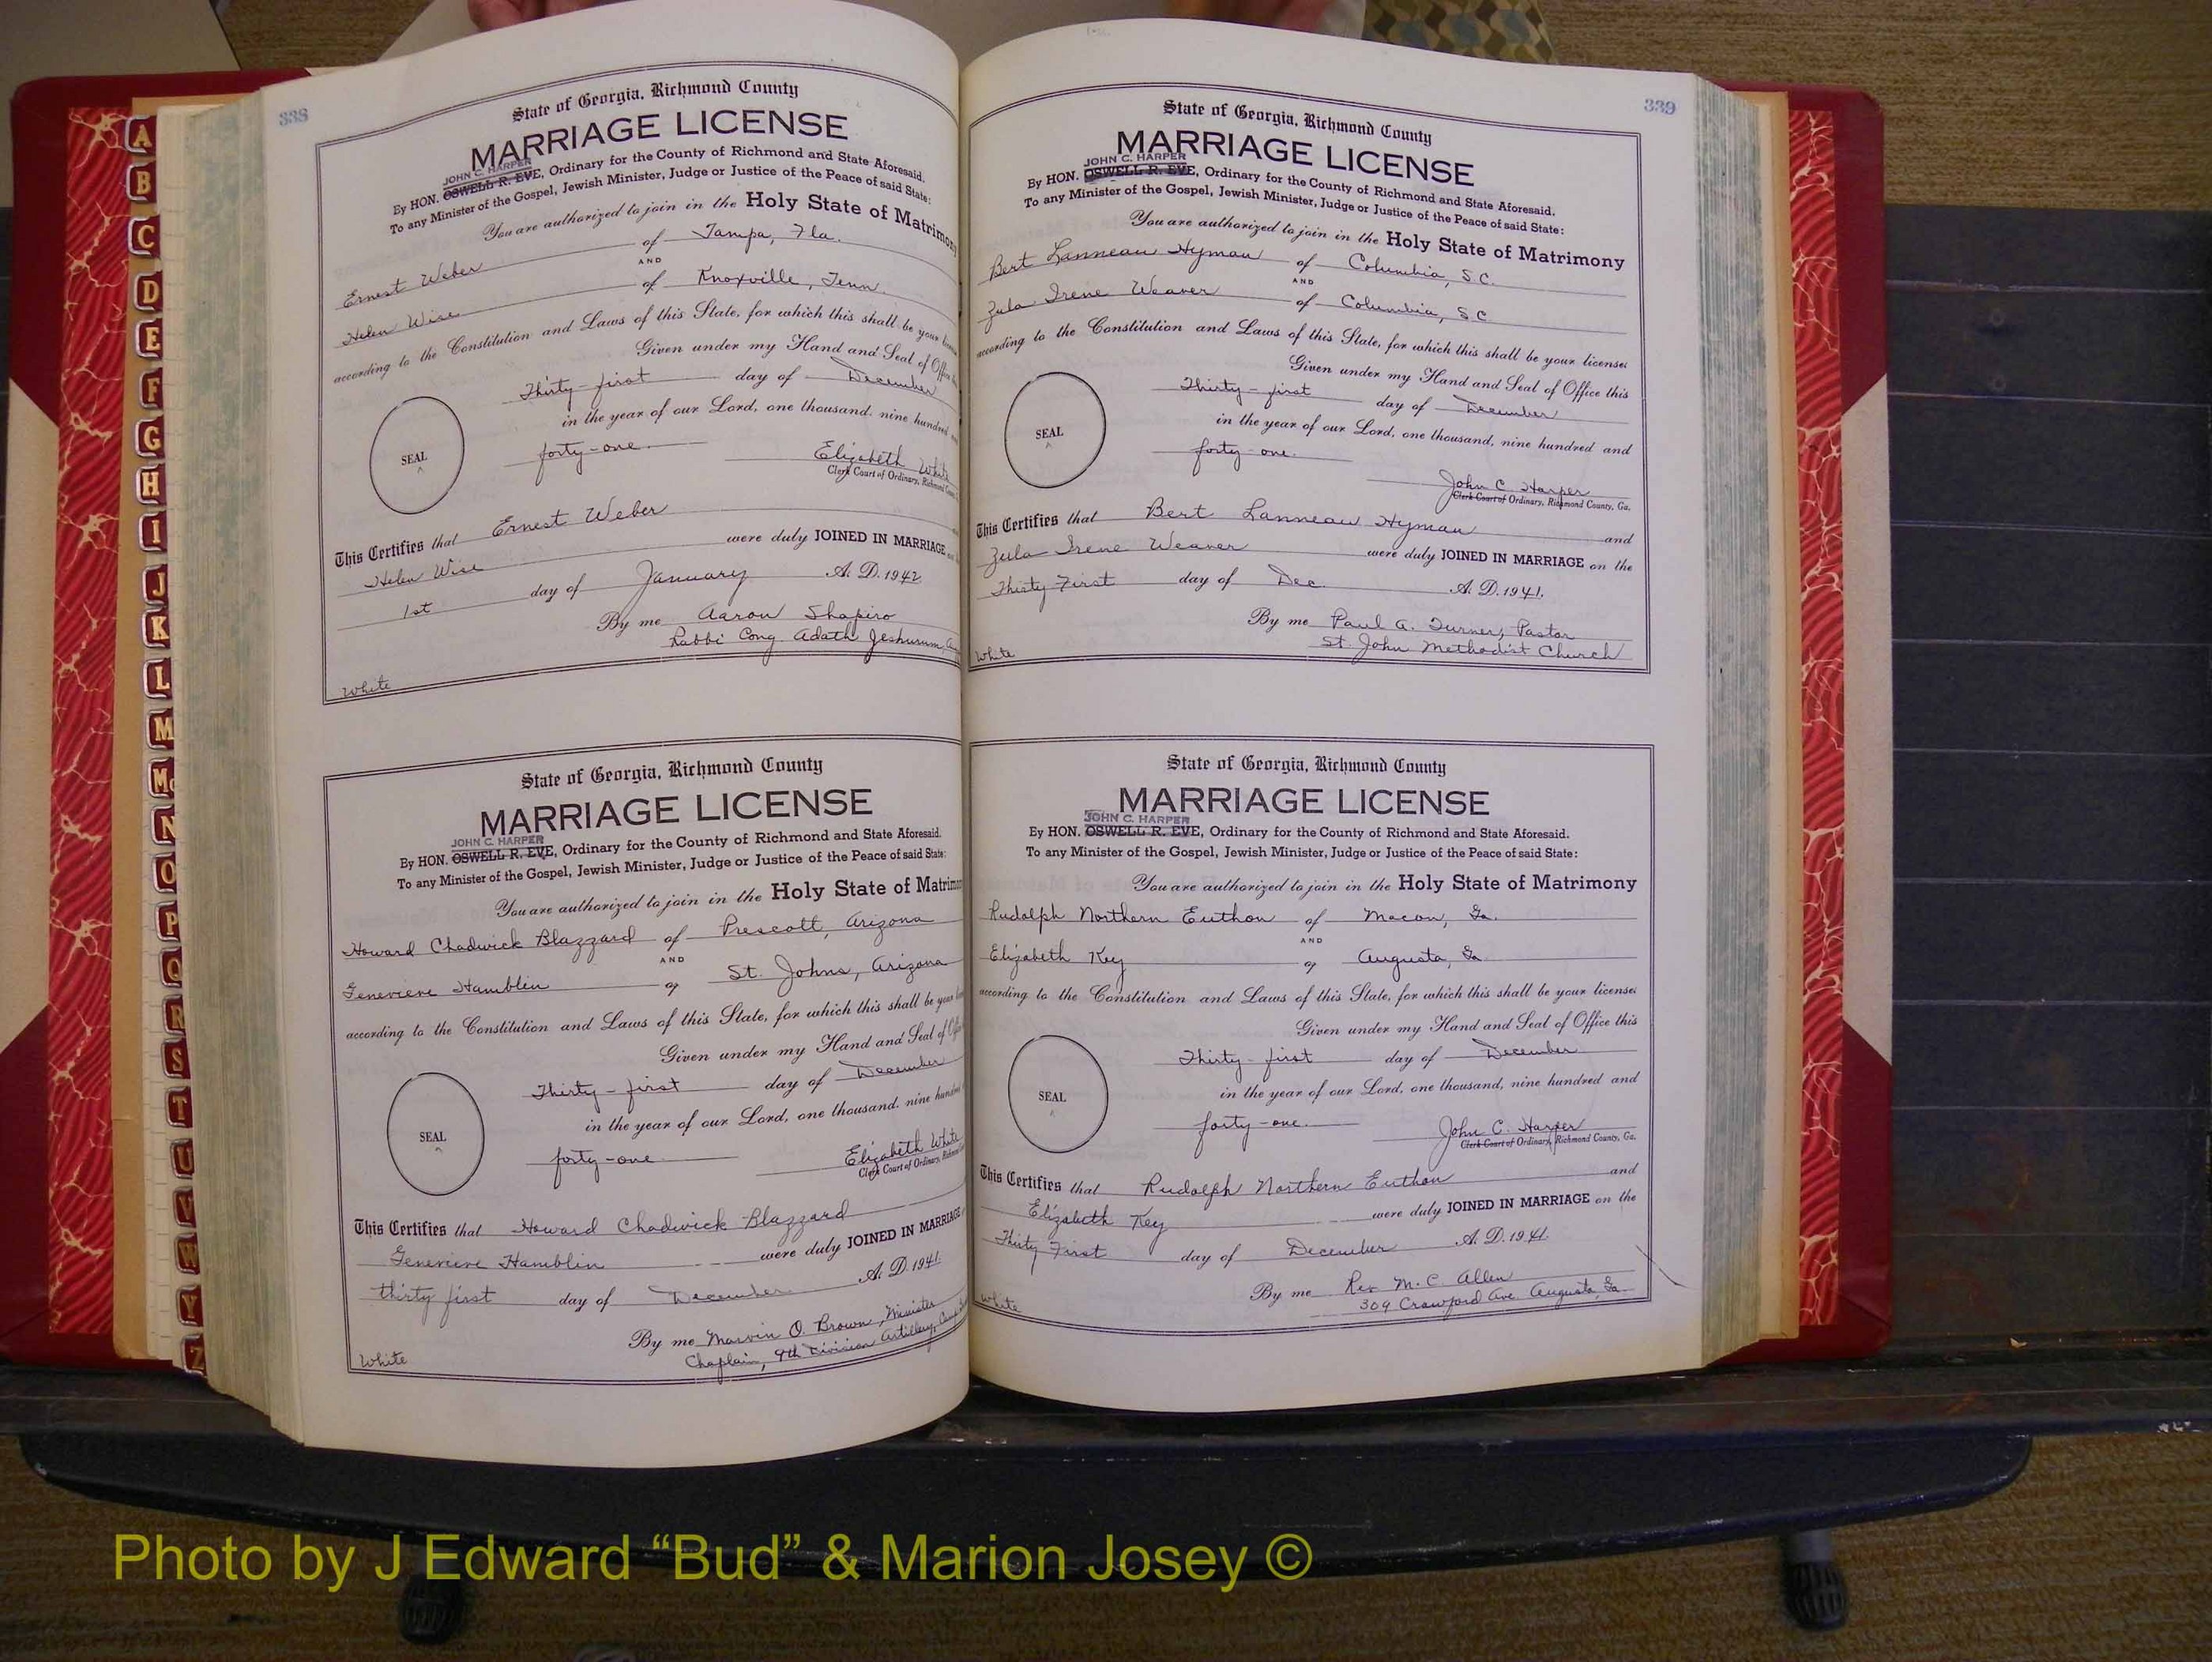 338
State of Georgia, Richmond County
MARRIAGE LICENSE
JOHN C. HARPER
By HON. OSWELL R. EVE, Ordinary for the County of Richmond and State Aforesaid.
To any Minister of the Gospel, Jewish Minister, Judge or Justice of the Peace of said State:
You are authorized to join in the Holy State of Matrimony
Ernest Weber of Tampa, Fla.
AND
Helen Wise of Knoxville, Tenn.
according to the Constitution and Laws of this State, for which this shall be your
Given under my Hand and Seal of Office
Thirty-first day of December
in the year of our Lord, one thousand, nine hundred
forty-one
SEAL
Elizabeth White
Clerk Court of Ordinary, Richmond
This Certifies that Ernest Weber
Helen Wise were duly JOINED IN MARRIAGE
1st day of January A. D. 1942
By me Aaron Shapiro
Rabbi Cong Adath Jeshurun,
White
State of Georgia, Richmond County
MARRIAGE LICENSE
JOHN C. HARPER
By HON. OSWELL R. EVE, Ordinary for the County of Richmond and State Aforesaid.
To any Minister of the Gospel, Jewish Minister, Judge or Justice of the Peace of said State:
You are authorized to join in the Holy State of Matrimony
Howard Chadwick Blazzard of Prescott, Arizona
AND
Genevieve Hamblin of St. Johns, Arizona
according to the Constitution and Laws of this State, for which this shall be your
Given under my Hand and Seal of
Thirty-first day of December
in the year of our Lord, one thousand, nine hundred
forty-one
SEAL
Elizabeth White
Clerk Court of Ordinary, Richmond
This Certifies that Howard Chadwick Blazzard
Genevieve Hamblin were duly JOINED IN MARRIAGE
thirty first day of December A. D. 1941.
By me Marvin O. Brown, Minister
Chaplain, 9th Division Artillery,
White
339
State of Georgia, Richmond County
MARRIAGE LICENSE
JOHN C. HARPER
By HON. OSWELL R. EVE, Ordinary for the County of Richmond and State Aforesaid.
To any Minister of the Gospel, Jewish Minister, Judge or Justice of the Peace of said State:
You are authorized to join in the Holy State of Matrimony
Bert Lanneau Hyman of Columbia, S.C.
AND
Zula Irene Weaver of Columbia, S C
according to the Constitution and Laws of this State, for which this shall be your license:
Given under my Hand and Seal of Office this
Thirty-first day of December
in the year of our Lord, one thousand, nine hundred and
forty-one.
SEAL
John C. Harper
Clerk Court of Ordinary, Richmond County, Ga.
This Certifies that Bert Lanneau Hyman and
Zula Irene Weaver were duly JOINED IN MARRIAGE on the
Thirty First day of Dec. A. D. 1941.
By me Paul A. Turner, Pastor
St. John Methodist Church
White
State of Georgia, Richmond County
MARRIAGE LICENSE
JOHN C. HARPER
By HON. OSWELL R. EVE, Ordinary for the County of Richmond and State Aforesaid.
To any Minister of the Gospel, Jewish Minister, Judge or Justice of the Peace of said State:
You are authorized to join in the Holy State of Matrimony
Rudolph Northern Euthon of Macon, Ga.
AND
Elizabeth Key of Augusta, Ga
according to the Constitution and Laws of this State, for which this shall be your license:
Given under my Hand and Seal of Office this
Thirty-first day of December
in the year of our Lord, one thousand, nine hundred and
forty-one.
SEAL
John C. Harper
Clerk Court of Ordinary, Richmond County, Ga.
This Certifies that Rudolph Northern Euthon and
Elizabeth Key were duly JOINED IN MARRIAGE on the
Thirty First day of December A. D. 1941.
By me Rev M. C. Allen
309 Crawford Ave. Augusta, Ga.
White
A
B
C
D
E
F
G
H
I
J
K
L
M
Mc
N
O
P
Q
R
S
T
U
V
W
Y
Z
Photo by J Edward “Bud” & Marion Josey ©